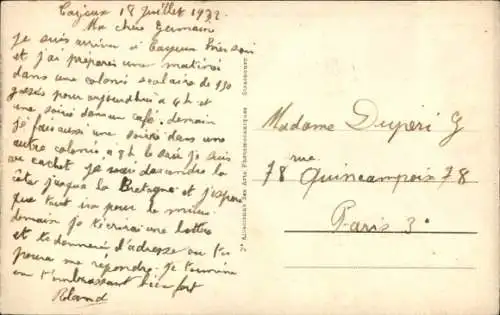 Cayeux 18 Juillet 1932
Ma chère Germaine
Je suis arrivé à Cayeux hier soir
et j'ai préparé une matinée
dans une colonie scolaire de 130
gosses pour aujourdhui à 4h et
une soirée dans un café. demain
je fais aussi une soirée dans une
autre colonie à 9h. le serié Je suis
au cachet je vais descendre la
côte jusque la Bretagne et j'espère
que tout ira pour le mieux
demain je t'écrirai une lettre
et te donnerai d'adresse ou tu
pourra me répondre. Je termine
en t'embrassant bien fort
Roland
Madame Duperi G
78 rue Quincampoix 78
Paris 3e